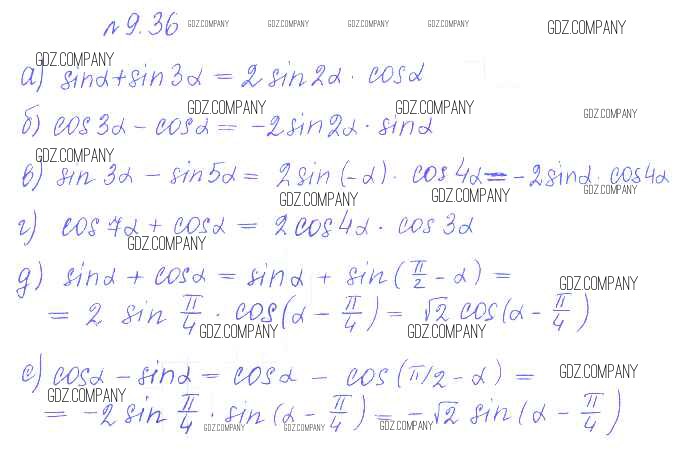 № 9.36 GDZ.COMPANY GDZ.COMPANY GDZ.COMPANY GDZ.COMPANY GDZ.COMPANY
GDZ.COMPANY
а) sinα + sin 3α = 2 sin 2α · cosα
GDZ.COMPANY GDZ.COMPANY GDZ.COMPANY
б) cos 3α − cosα = −2 sin 2α · sinα
GDZ.COMPANY
в) sin 3α − sin 5α = 2 sin (−α) · cos 4α = −2 sinα · cos 4α
GDZ.COMPANY GDZ.COMPANY GDZ.COMPANY
г) cos 7α + cosα = 2 cos 4α · cos 3α
GDZ.COMPANY
д) sinα + cosα = sinα + sin (π/2 − α) =
GDZ.COMPANY
= 2 sin π/4 · cos (α − π/4) = √2 cos (α − π/4)
GDZ.COMPANY GDZ.COMPANY
е) cosα − sinα = cosα − cos (π/2 − α) =
GDZ.COMPANY
GDZ.COMPANY
= −2 sin π/4 · sin (α − π/4) = −√2 sin (α − π/4)
GDZ.COMPANY GDZ.COMPANY GDZ.COMPANY